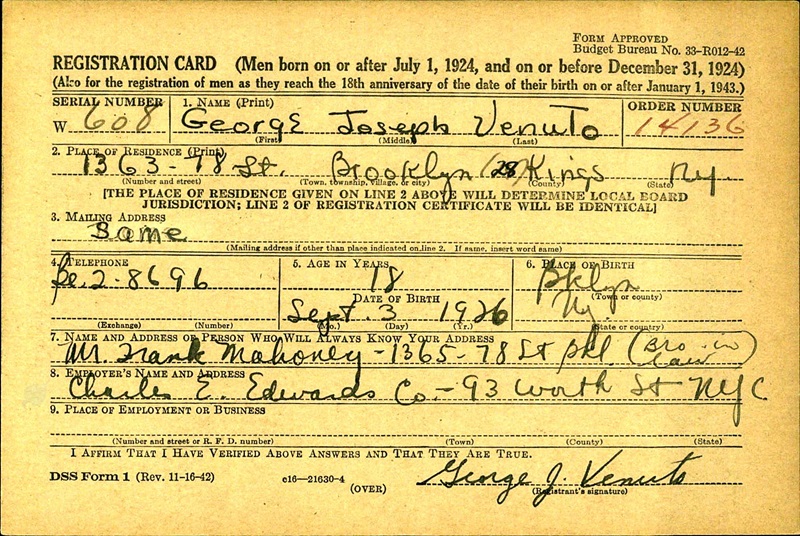 FORM APPROVED
Budget Bureau No. 33-R012-42
REGISTRATION CARD (Men born on or after July 1, 1924, and on or before December 31, 1924)
(Also for the registration of men as they reach the 18th anniversary of the date of their birth on or after January 1, 1943.)
SERIAL NUMBER 1. NAME (Print) ORDER NUMBER
W 608 George Joseph Venuto 14136
(First) (Middle) (Last)
2. PLACE OF RESIDENCE (Print)
1363-78 St. Brooklyn (28) Kings Ny.
(Number and street) (Town, township, village, or city) (County) (State)
[THE PLACE OF RESIDENCE GIVEN ON LINE 2 ABOVE WILL DETERMINE LOCAL BOARD
JURISDICTION; LINE 2 OF REGISTRATION CERTIFICATE WILL BE IDENTICAL]
3. MAILING ADDRESS
Same
(Mailing address if other than place indicated on line 2. If same, insert word same)
4. TELEPHONE 5. AGE IN YEARS 6. PLACE OF BIRTH
Be. 2-8696 18 Bklyn
DATE OF BIRTH (Town or county)
Sept. 3 1926 Ny.
(Exchange) (Number) (Mo.) (Day) (Yr.) (State or country)
7. NAME AND ADDRESS OF PERSON WHO WILL ALWAYS KNOW YOUR ADDRESS
Mr. Frank Mahoney - 1365-78 St (Bro-in law)
8. EMPLOYER'S NAME AND ADDRESS
Charles E. Edwards Co. - 93 Worth St NYC
9. PLACE OF EMPLOYMENT OR BUSINESS
(Number and street or R. F. D. number) (Town) (County) (State)
I AFFIRM THAT I HAVE VERIFIED ABOVE ANSWERS AND THAT THEY ARE TRUE.
DSS Form 1 (Rev. 11-16-42) c16—21630-4 George J. Venuto
(OVER) (Registrant's signature)